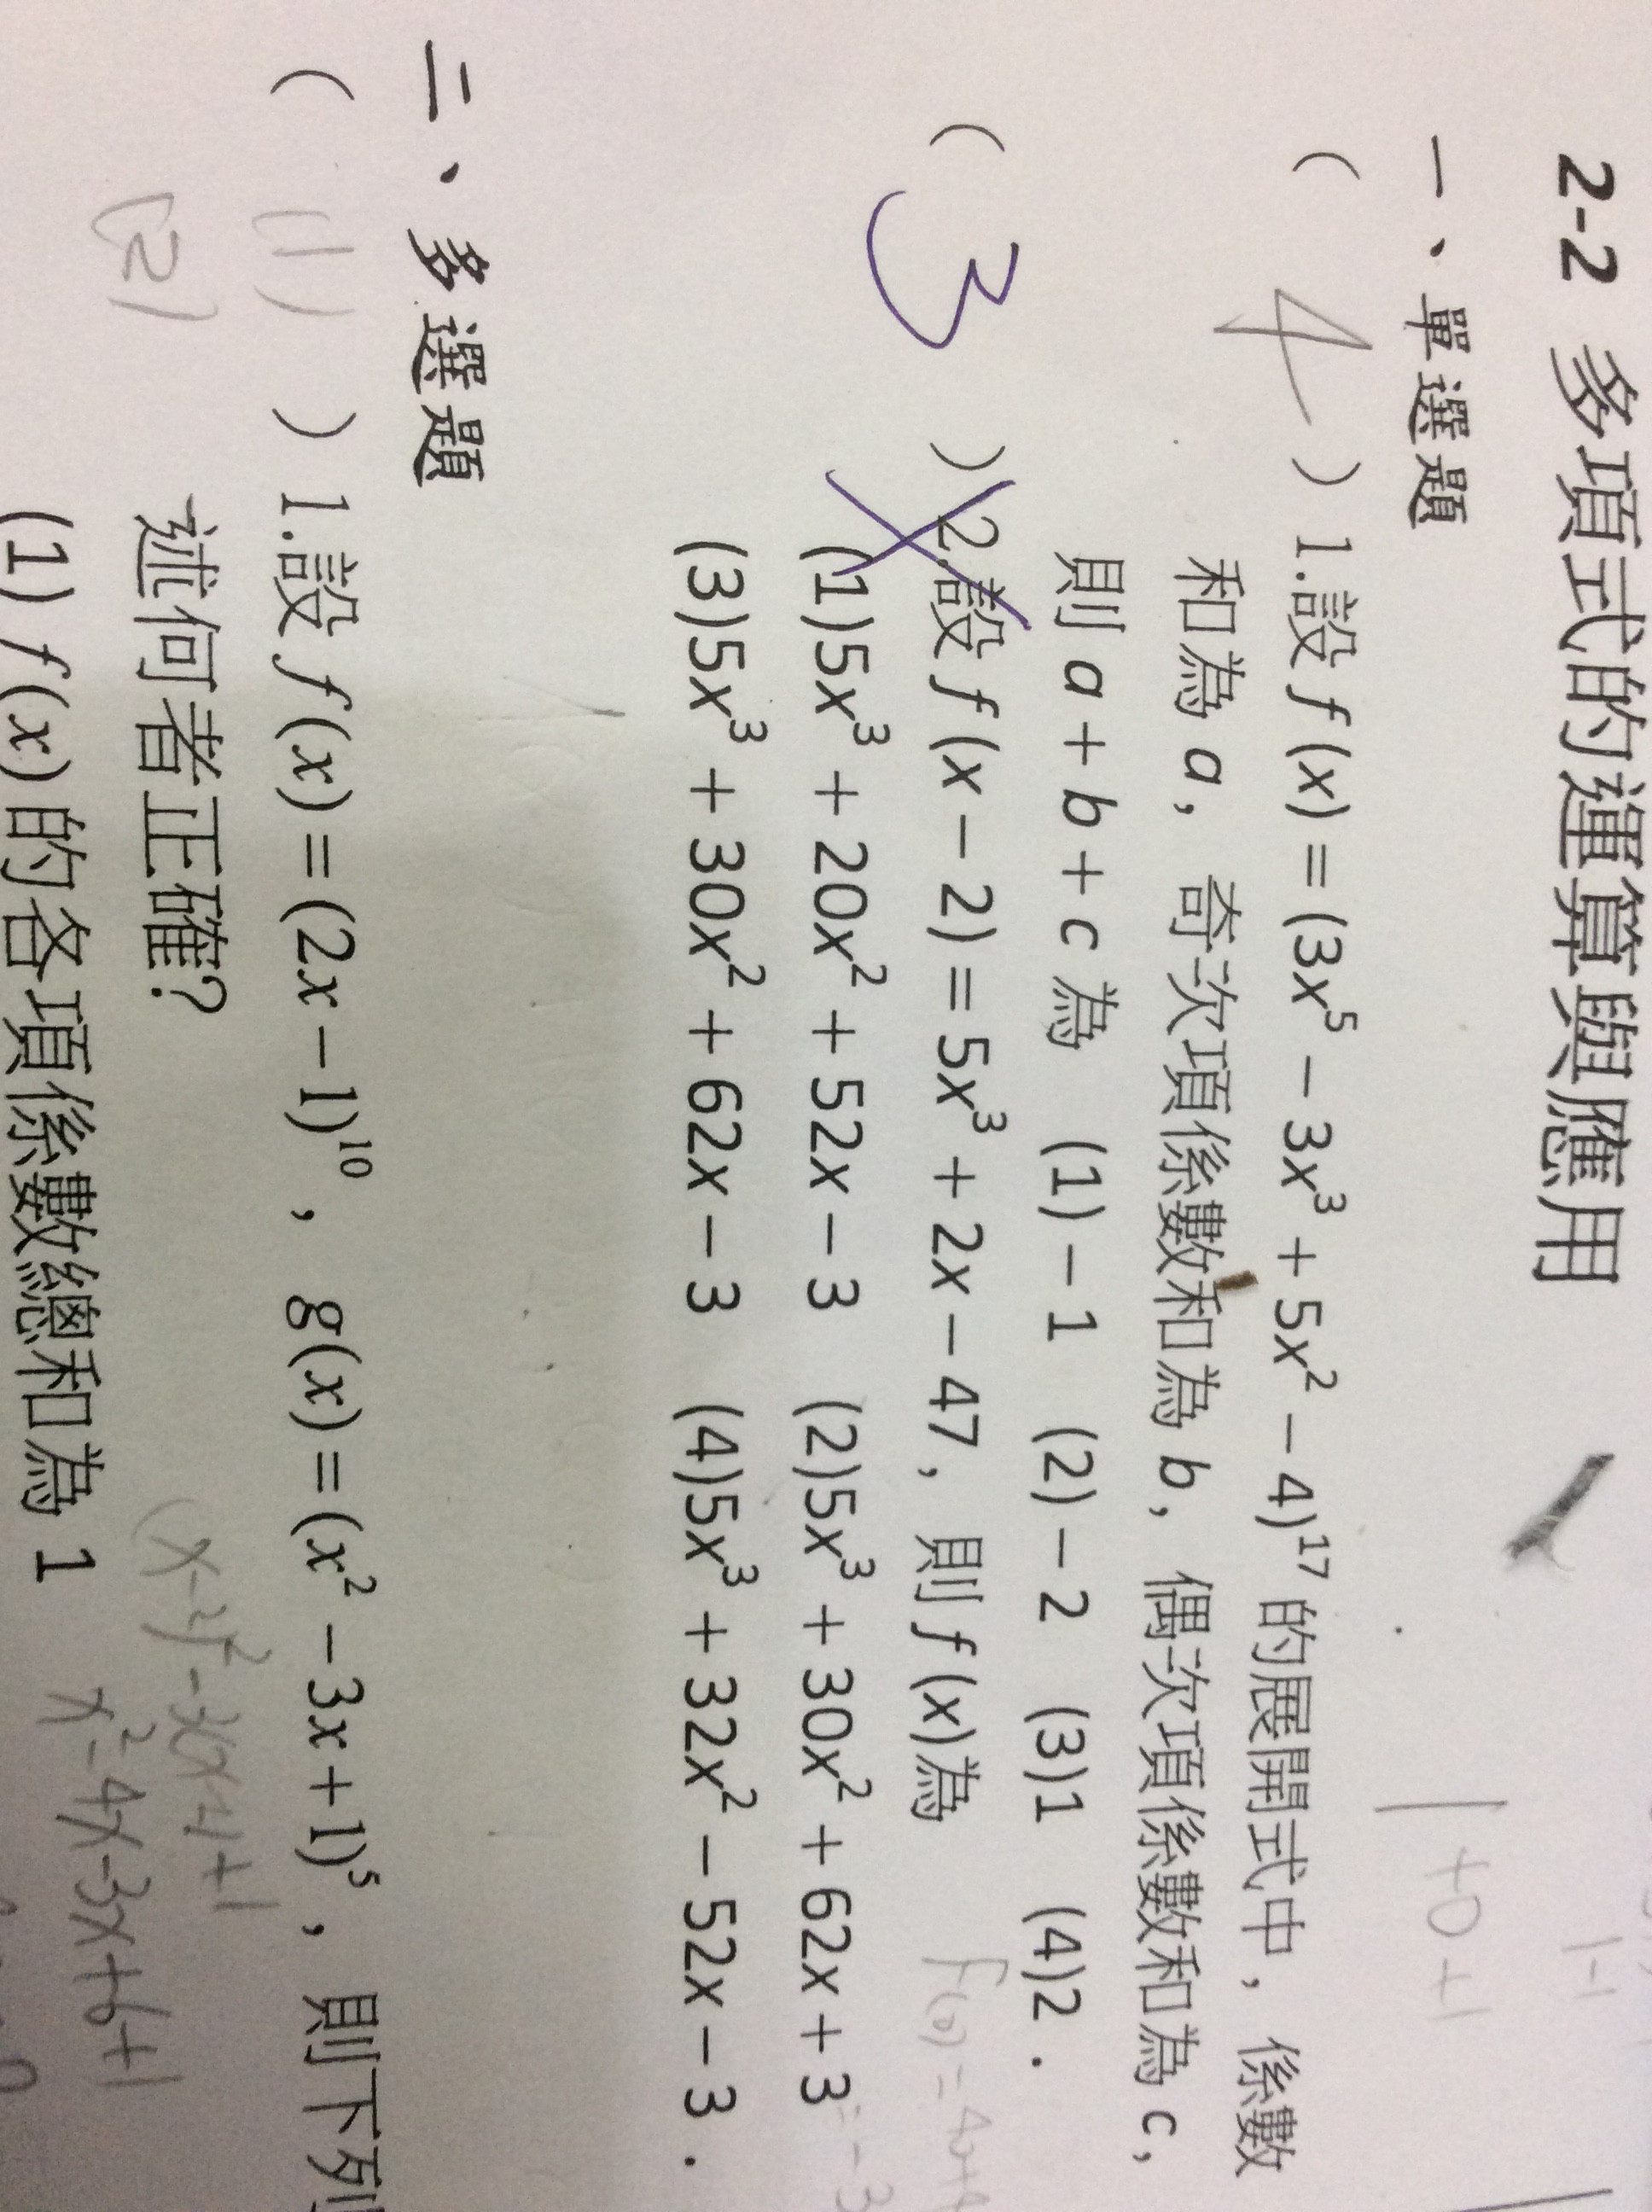 2-2 多項式的運算與應用
一、單選題
( 4 ) 1.設 f(x) = (3x⁵ − 3x³ + 5x² − 4)¹⁷ 的展開式中，係數
和為 a，奇次項係數和為 b，偶次項係數和為 c，
則 a + b + c 為 (1) − 1 (2) − 2 (3)1 (4)2．
( 3 ) 2.設 f(x − 2) = 5x³ + 2x − 47，則 f(x)為
(1)5x³ + 20x² + 52x − 3 (2)5x³ + 30x² + 62x + 3
(3)5x³ + 30x² + 62x − 3 (4)5x³ + 32x² − 52x − 3．
二、多選題
( (1) ) 1.設 f(x) = (2x − 1)¹⁰，g(x) = (x² − 3x + 1)⁵，則下列
(2) 述何者正確?
(1) f(x) 的各項係數總和為 1
x²-4x-3x+6+1
1+0+1